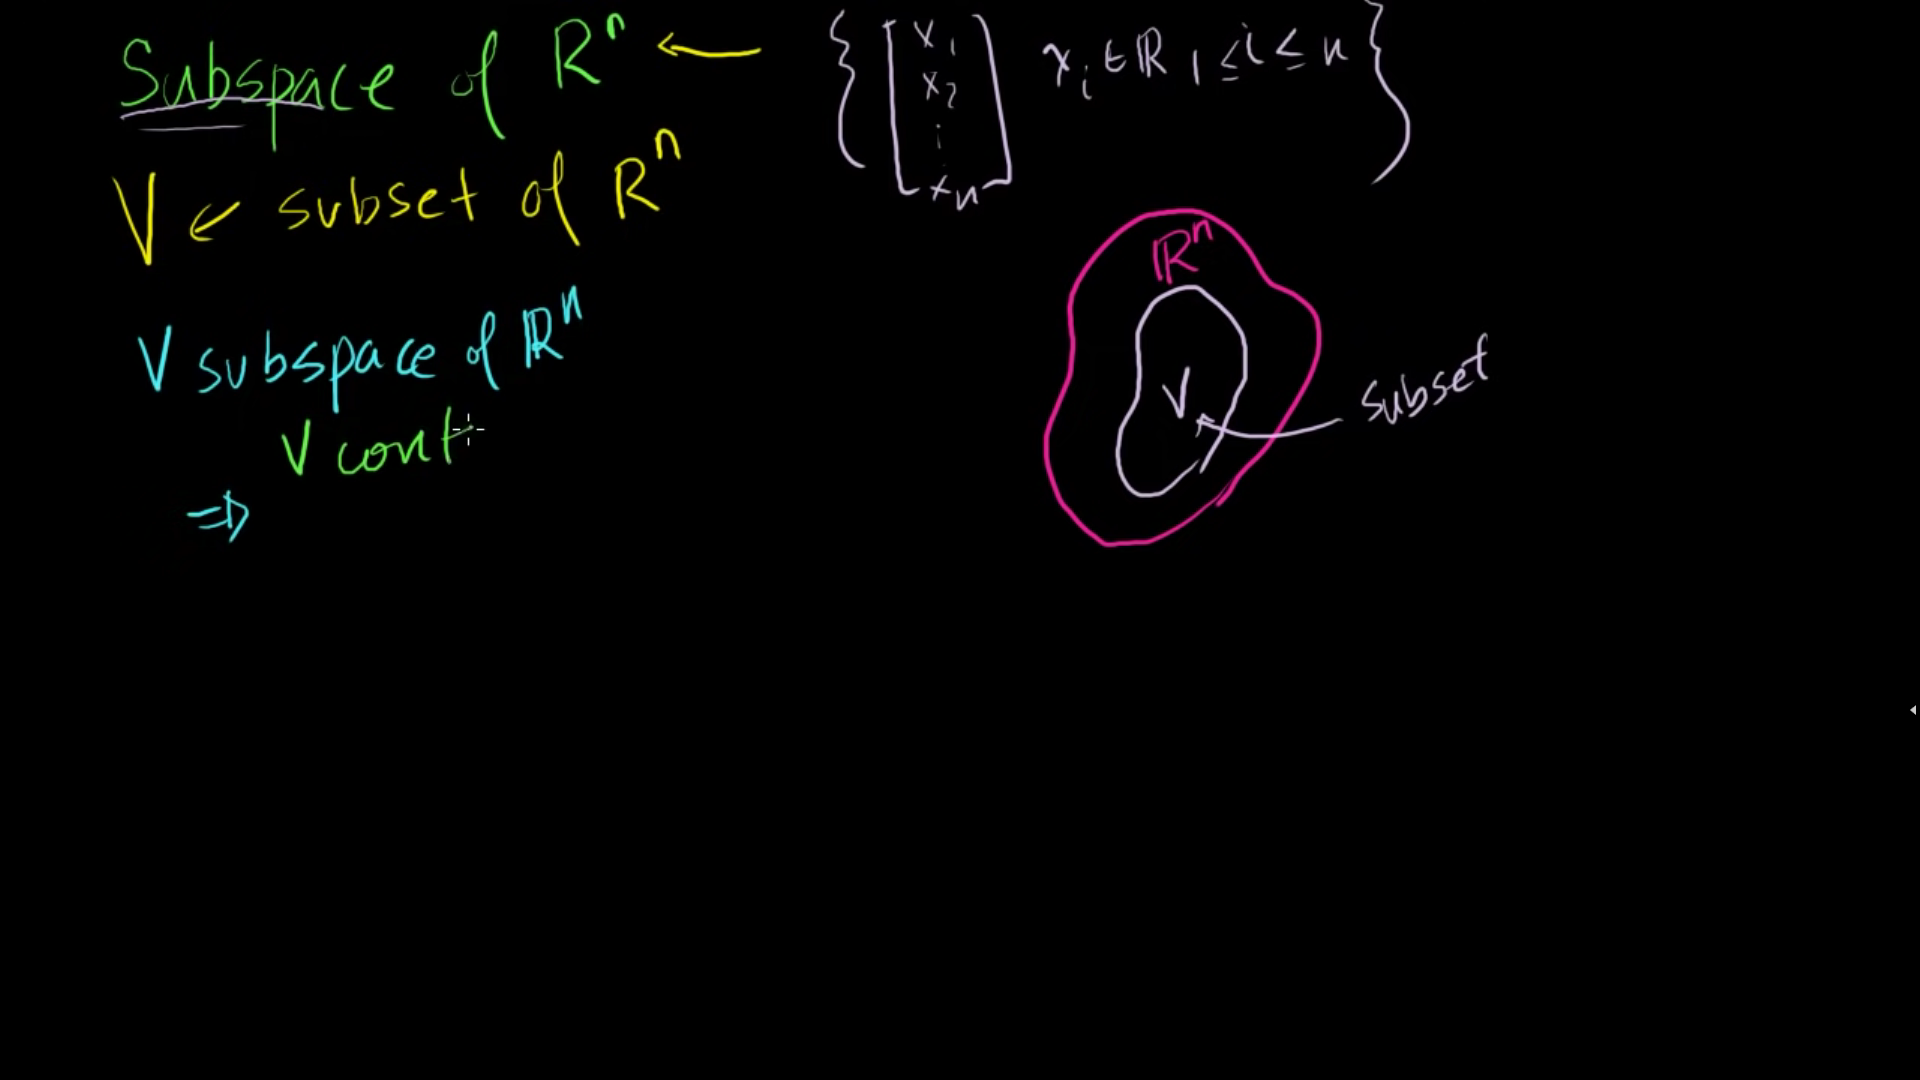 Subspace of Rⁿ ← { [ x₁ x₂ ⋮ xₙ ] xᵢ ∈ ℝ 1 ≤ i ≤ n }
V ← subset of Rⁿ
V subspace of ℝⁿ
V cont
⇒
ℝⁿ
V
subset